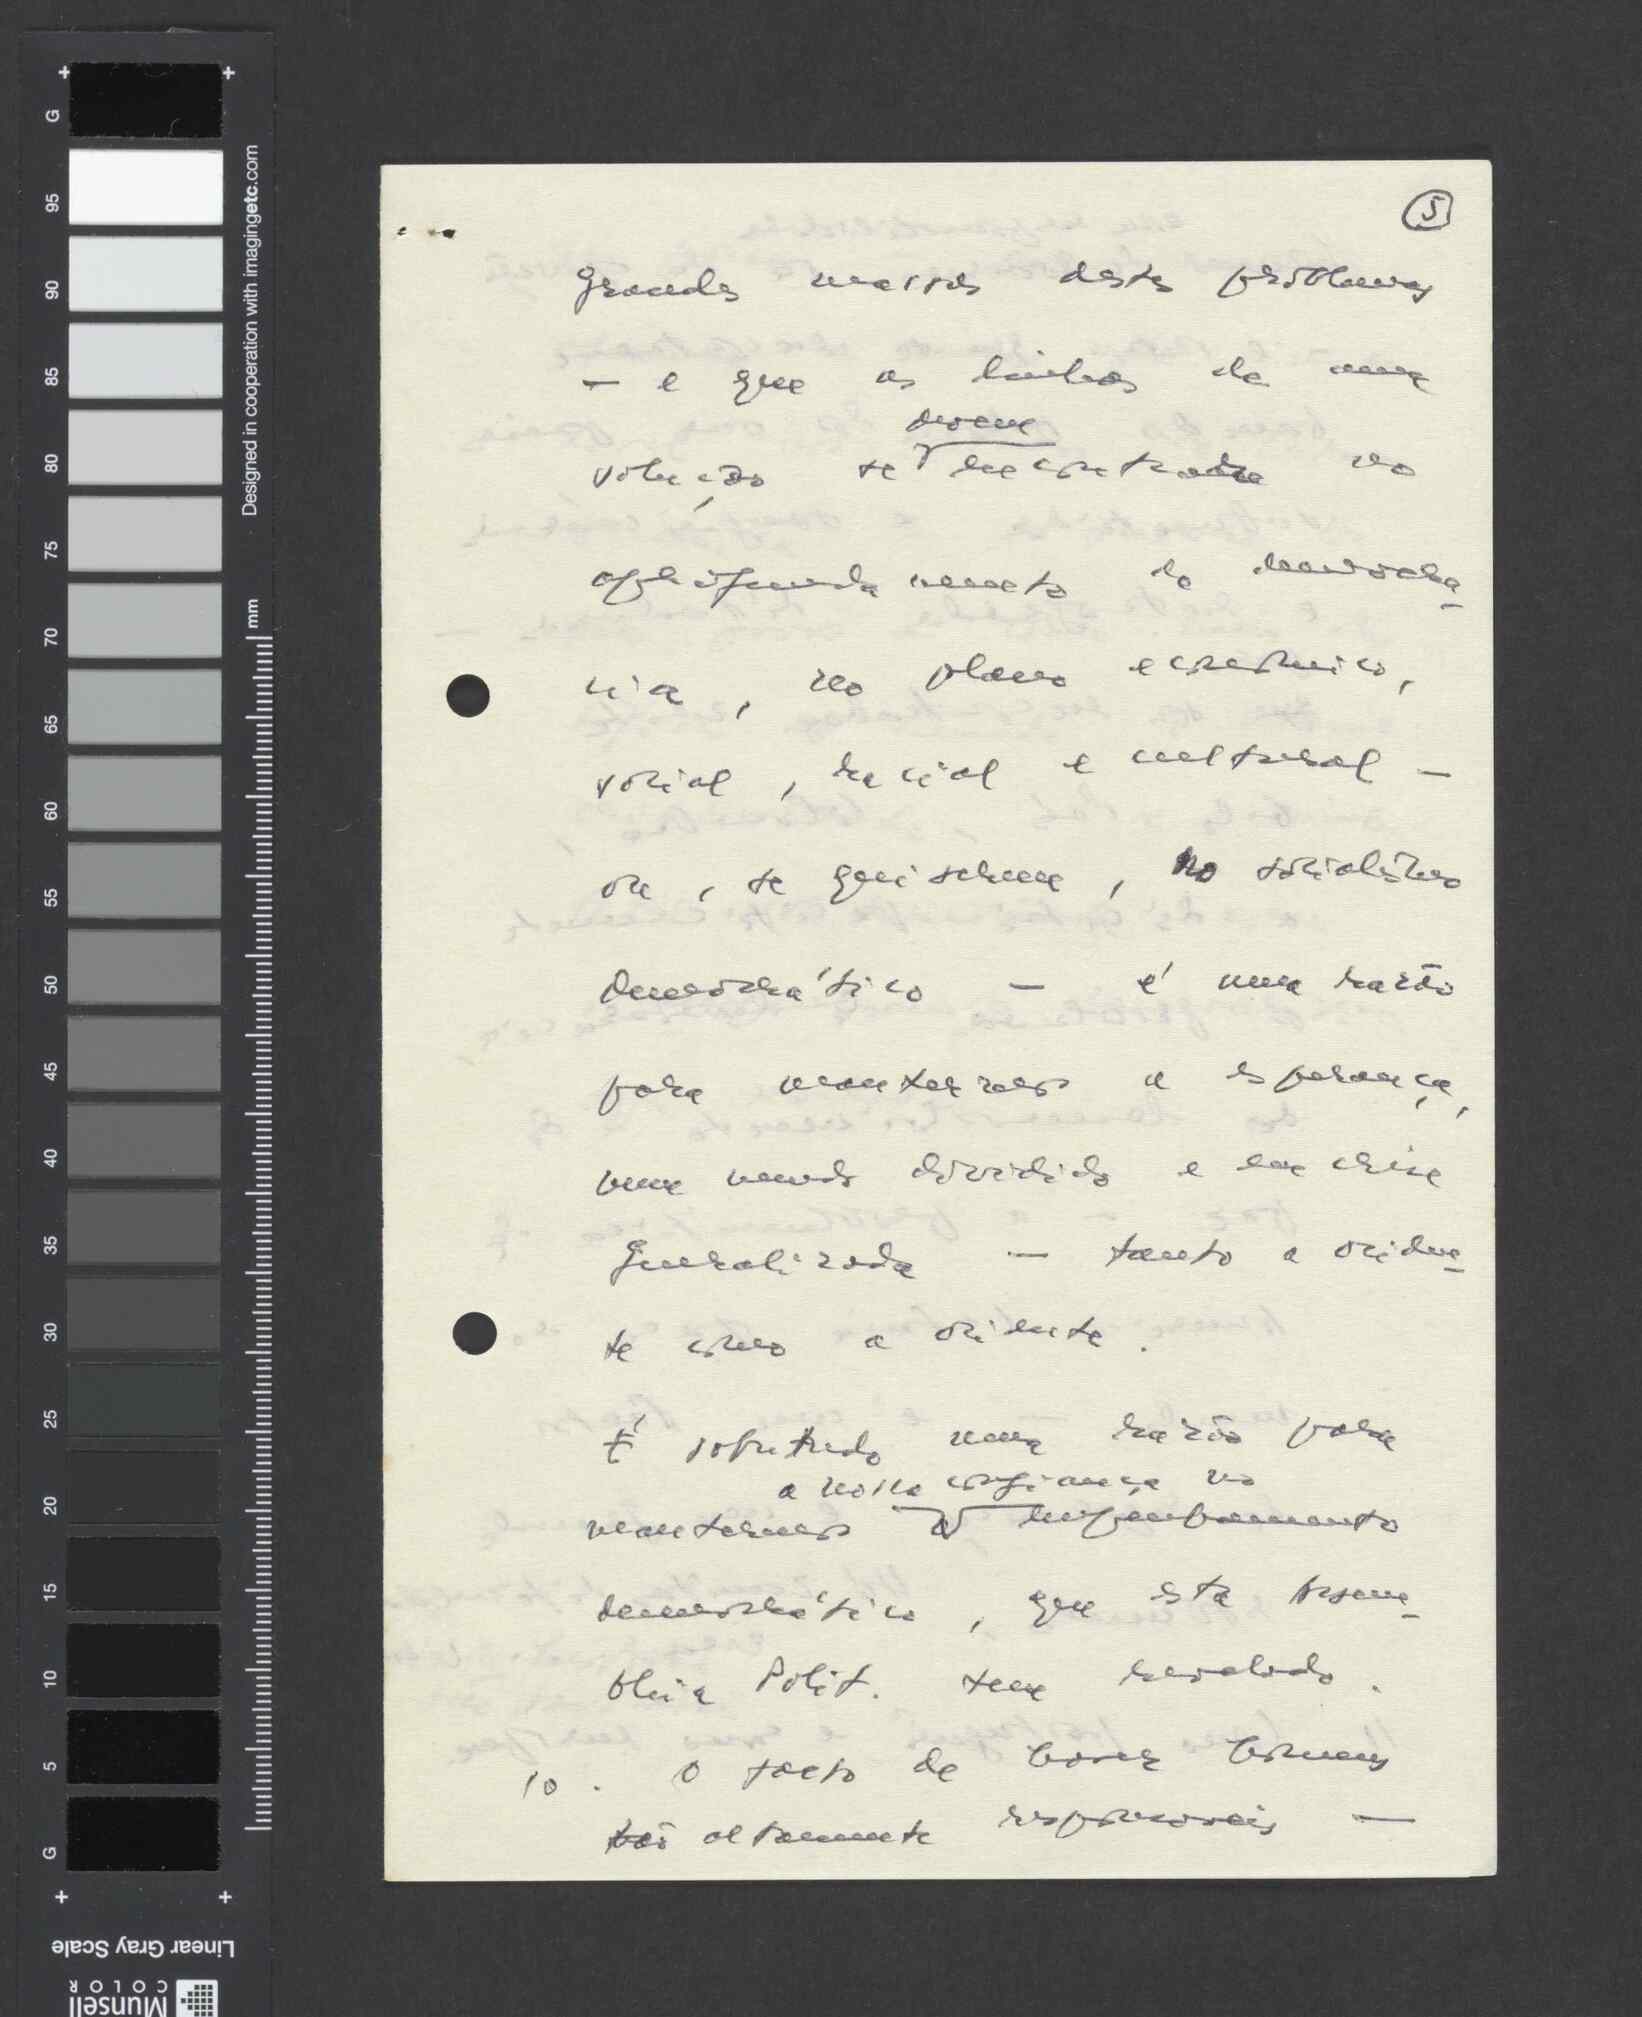 5
grandes massas destes problemas
— e que as linhas de uma
devem
solução se encontrar no
aprofundamento da democra-
cia, no plano económico,
social, racial e cultural —
ou, se quiserem, no socialismo
democrático — é uma razão
para mantermos a esperança,
num mundo dividido e em crise
generalizada — tanto a orien-
te como a ocidente.
É sobretudo uma razão para
a nossa confiança no
mantermos
democrático, que esta Assem-
bleia Polit. tem revelado.
10. O facto de haver homens
tão altamente responsáveis —
G
95
90
85
80
75
70
65
60
55
50
45
40
35
30
25
20
15
10
5
G
Designed in cooperation with imagingetc.com
mm
Linear Gray Scale
Munsell
COLOR